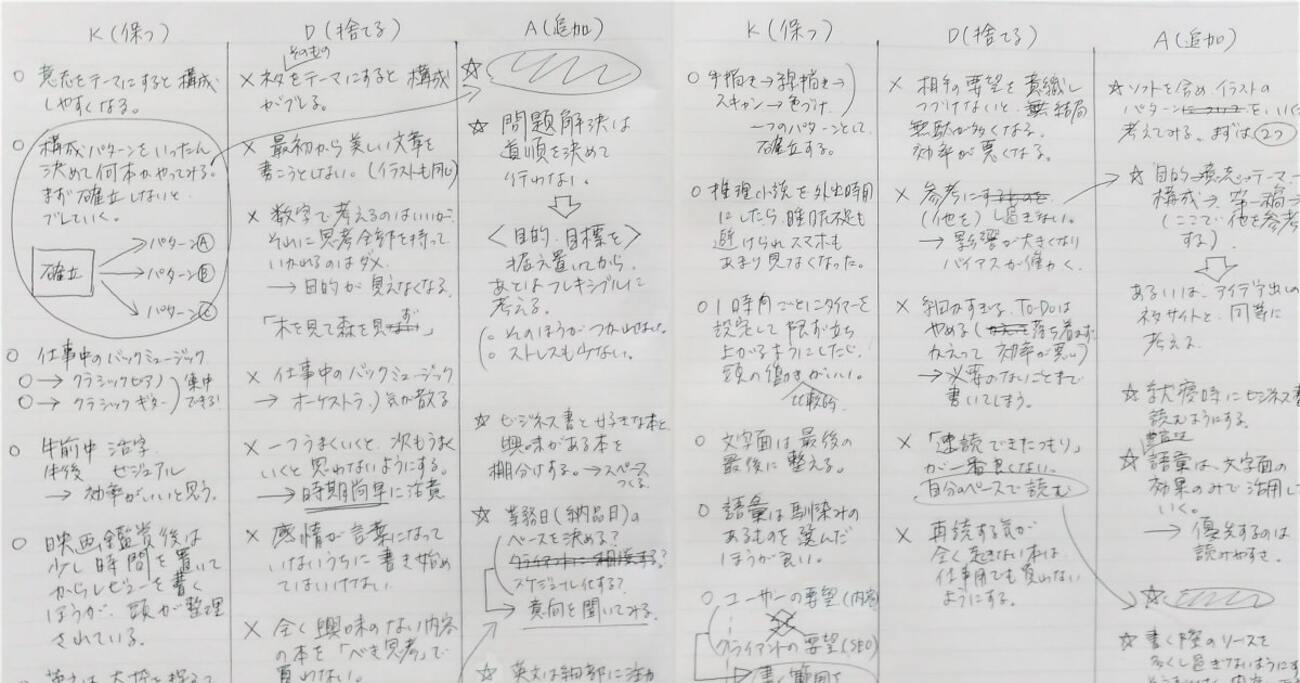 K(保つ)
○ 意志をテーマにすると構成
しやすくなる。
○ 構成パターンをいったん
決めて何本かやってみる。
まず確立しないと
ブレていく。
確立
パターンⒶ
パターンⒷ
パターンⒸ
○ 仕事中のバックミュージック
○→ クラシックピアノ
○→ クラシックギター
集中
できる!
○ 午前中 活字
午後 ビジュアル
→ 効率がいいと思う。
○ 映画鑑賞後は
少し時間を置いて
からレビューを書く
ほうが、頭が整理
されている。
D(捨てる)
そのもの
× ネタをテーマにすると構成
がブレる。
× 最初から美しい文章を
書こうとしない。(イラストも同じ)
× 数字で考えるのはいいが、
それに思考全部を持って
いかれるのはダメ。
→ 目的が見えなくなる。
「木を見て森を見ず」
× 仕事中のバックミュージック
→ オーケストラ 気が散る
× 一つうまくいくと、次もうまく
いくと思わないようにする。
→ 時期尚早に注意
× 感情が言葉になって
いないうちに書き始め
てはいけない。
× 全く興味のない内容
の本を「べき思考」で
買わない。
A(追加)
☆
☆ 問題解決は
道順を決めて
行わない。
<目的、目標を>
据え置いてから、
あとはフレキシブルに
考える。
○ そのほうがつかれない。
○ ストレスも少ない。
☆ ビジネス書と好きな本と
興味がある本を
棚分けする。→スペース
つくる。
☆ 業務日(納品日)の
ペースを決める?
クライアントに相談する?
スケジュール化する?
→ 意向を聞いてみる。
☆ 英文は細部に注力
K(保つ)
○ 手描き→線描き→
スキャン→色づけ
一つのパターンとして
確立する。
○ 推理小説を外出時用
にしたら、睡眠不足も
避けられスマホも
あまり見なくなった。
○ 1時間ごとにタイマーを
設定して必ず立ち
上がるようにしたら、
頭の働きがいい。
比較的
○ 文字面は最後の
最後に整える。
○ 語彙は馴染みの
あるものを選んだ
ほうが良い。
○ ユーザーの要望(内容)
クライアントの要望(SEO)
D(捨てる)
× 相手の要望を意識し
つづけないと、結局
無駄が多くなる。
効率が悪くなる。
× 参考にし過ぎない。
(他を)
→ 影響が大きくなり
バイアスが働く。
× 細かすぎる To-Doは
やめる(落ち着かず
かえって効率が悪い)
→ 必要のないことまで
書いてしまう。
× 「速読できたつもり」
が一番良くない。
自分のペースで読む
× 再読する気が
全く起きない本は、
仕事用でも買わない
ようにする。
A(追加)
☆ ソフトを含めイラストの
パターンをいくつ
考えてみる。まずは2つ
☆ 目的→意志→テーマ→
構成→ 第一稿→
(ここで他を参考
する)
あるいは、アイデア出しの
ネタサイトと、同等に
考える
☆ 就寝時にビジネス書
読むようにする。
☆ 語彙は、文字面の
効果のみで活用して
いく。
→ 優先するのは
読みやすさ。
☆
☆ 書く際のソースを
多くし過ぎないように